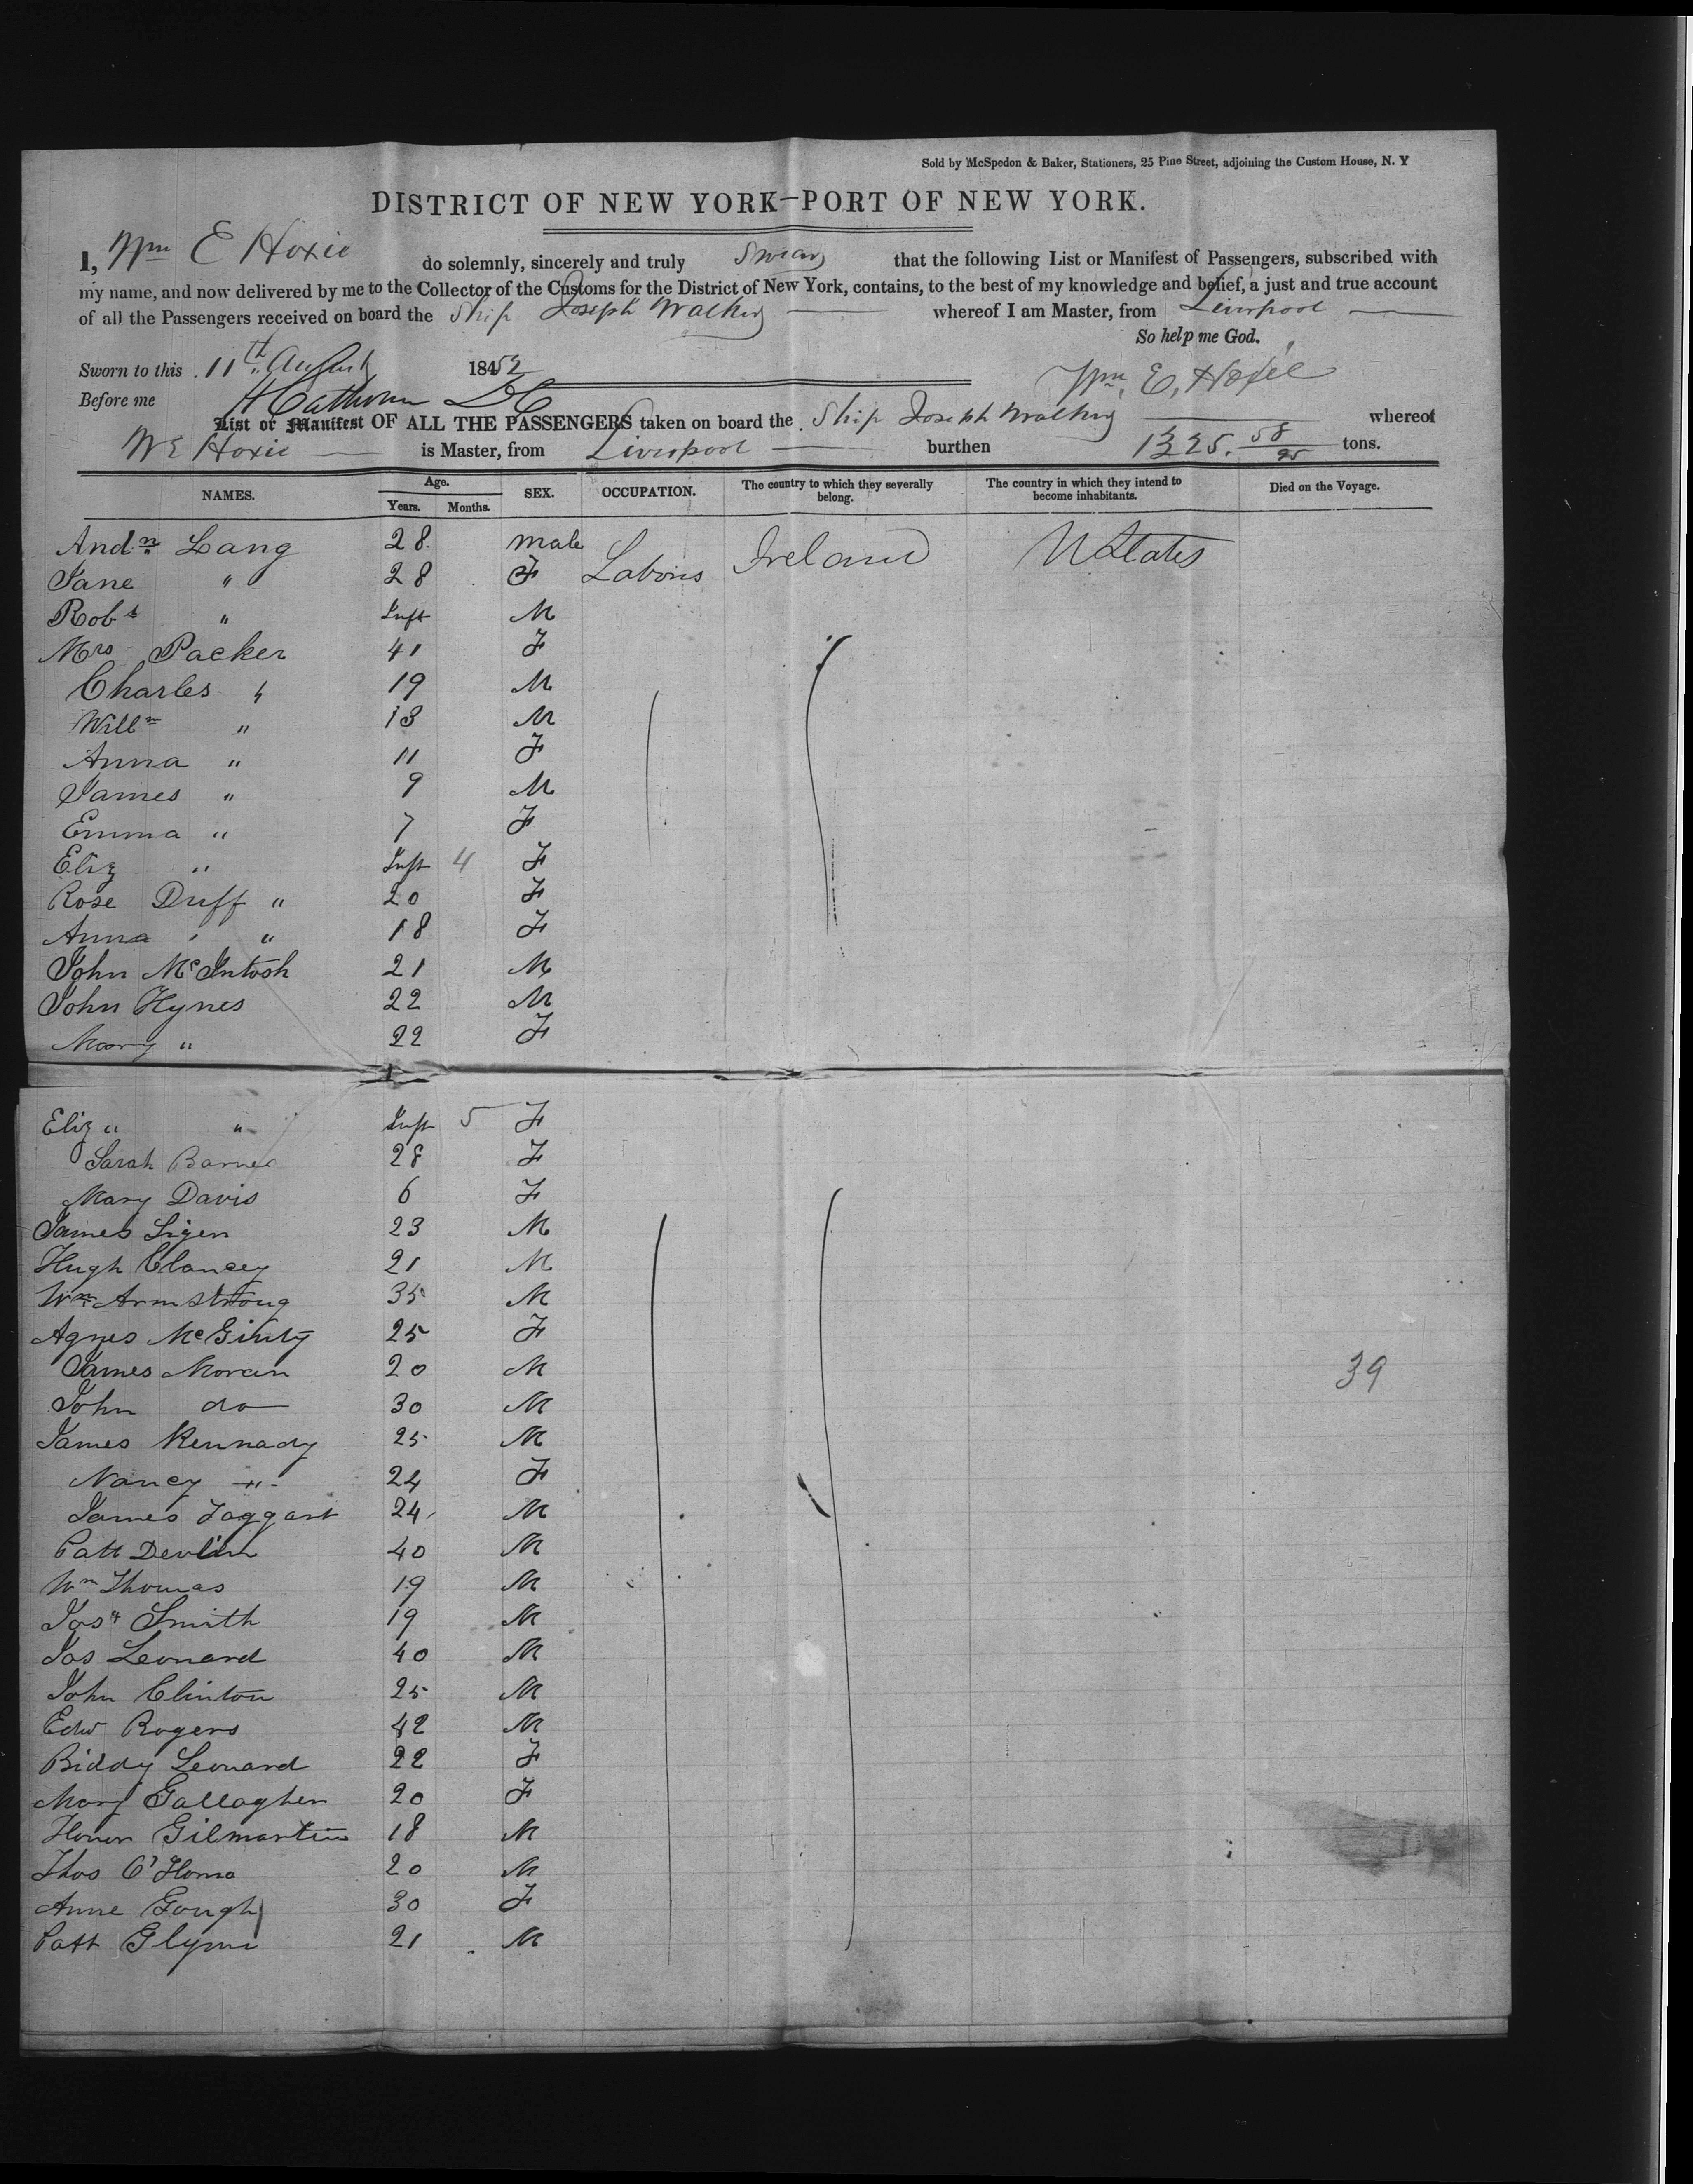 Sold by McSpedon & Baker, Stationers, 25 Pine Street, adjoining the Custom House, N. Y
DISTRICT OF NEW YORK—PORT OF NEW YORK.
I, Wm E Hoxie do solemnly, sincerely and truly Swear that the following List or Manifest of Passengers, subscribed with
my name, and now delivered by me to the Collector of the Customs for the District of New York, contains, to the best of my knowledge and belief, a just and true account
of all the Passengers received on board the Ship Joseph Walker whereof I am Master, from Liverpool
So help me God.
Sworn to this 11th August 1852
Wm. E. Hoxie
Before me
List or Manifest OF ALL THE PASSENGERS taken on board the Ship Joseph Walker whereof
W E Hoxie is Master, from Liverpool burthen 1325. 58/95 tons.
NAMES. Age. Years. Months. SEX. OCCUPATION. The country to which they severally belong. The country in which they intend to become inhabitants. Died on the Voyage.
Andw Lang 28 male Labors Ireland U States
Jane " 28 F
Robt " Inft M
Mrs Packer 41 F
Charles " 19 M
Willm " 13 M
Anna " 11 F
James " 9 M
Emma " 7 F
Eliz " Inft 4 F
Rose Duff " 20 F
Anna " " 18 F
John McIntosh 21 M
John Hynes 22 M
Mary " 22 F
Eliz " " Inft 5 F
Sarah Barnes 28 F
Mary Davis 6 F
James 23 M
Hugh Clancey 21 M
Wm Armstrong 35 M
Agnes McGinty 25 F
James Moran 20 M
39
John do 30 M
James Kennady 25 M
Nancy " 24 F
James Taggart 24 M
Patt Devlin 40 M
Wm Thomas 19 M
Jas Smith 19 M
Jas Leonard 40 M
John Clinton 25 M
Edw Rogers 42 M
Biddy Leonard 22 F
Mary Gallagher 20 F
Honor Gilmartin 18 M
Thos 20 M
Anne Gough 30 F
Patt Glynn 21 M